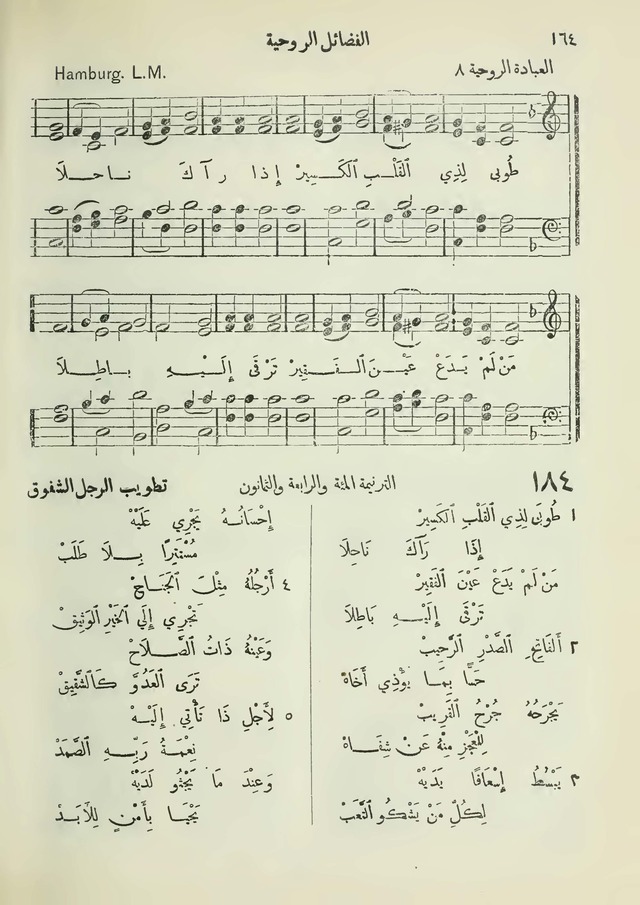 ١٦٤ الفضائل الروحية
العبادة الروحية ٨ Hamburg. L.M.
طُوبَى لِذِي ٱلْقَلْبِ ٱلْكَسِيرْ إِذَا رَآكَ نَاحِلَا
مَنْ لَمْ يَدَعْ عَيْنَ ٱلْفَقِيرْ تَرْقَى إِلَيْهِ بَاطِلَا
١٨٤ الترنيمة المئة والرابعة والثمانون تطويب الرجل الشفوق
١ طُوبَى لِذِي ٱلْقَلْبِ ٱلْكَسِيرْ
إِذَا رَآكَ نَاحِلَا
مَنْ لَمْ يَدَعْ عَيْنَ ٱلْفَقِيرْ
تَرْقَى إِلَيْهِ بَاطِلَا
٢ أَلْفَاتِحِ ٱلصَّدْرِ ٱلرَّحِيبْ
حَسًّا بِمَا يُؤْذِي أَخَاهْ
يَجْرَحُهُ جُرْحُ ٱلْقَرِيبْ
لِلْعَجْزِ مِنْهُ عَنْ شِفَاهْ
٣ يَبْسُطُ إِسْعَافًا يَدَيْهْ
لِكُلِّ مَنْ يَشْكُو ٱلتَّعَبْ
إِحْسَانُهُ يَجْرِي عَلَيْهْ
مُسْتَتِرًا بِلَا طَلَبْ
٤ أَرْجُلُهُ مِثْلَ ٱلْجَنَاحْ
تَجْرِي إِلَى ٱلْخَيْرِ ٱلْوَثِيقْ
وَعَيْنُهُ ذَاتُ ٱلصَّلَاحْ
تَرَى ٱلْعَدُوَّ كَٱلشَّقِيقْ
٥ لِأَجْلِ ذَا تَأْتِي إِلَيْهْ
نِعْمَةُ رَبِّهِ ٱلصَّمَدْ
وَعِنْدَ مَا يَجْثُو لَدَيْهْ
يَحْيَا بِأَمْنٍ لِلْأَبَدْ